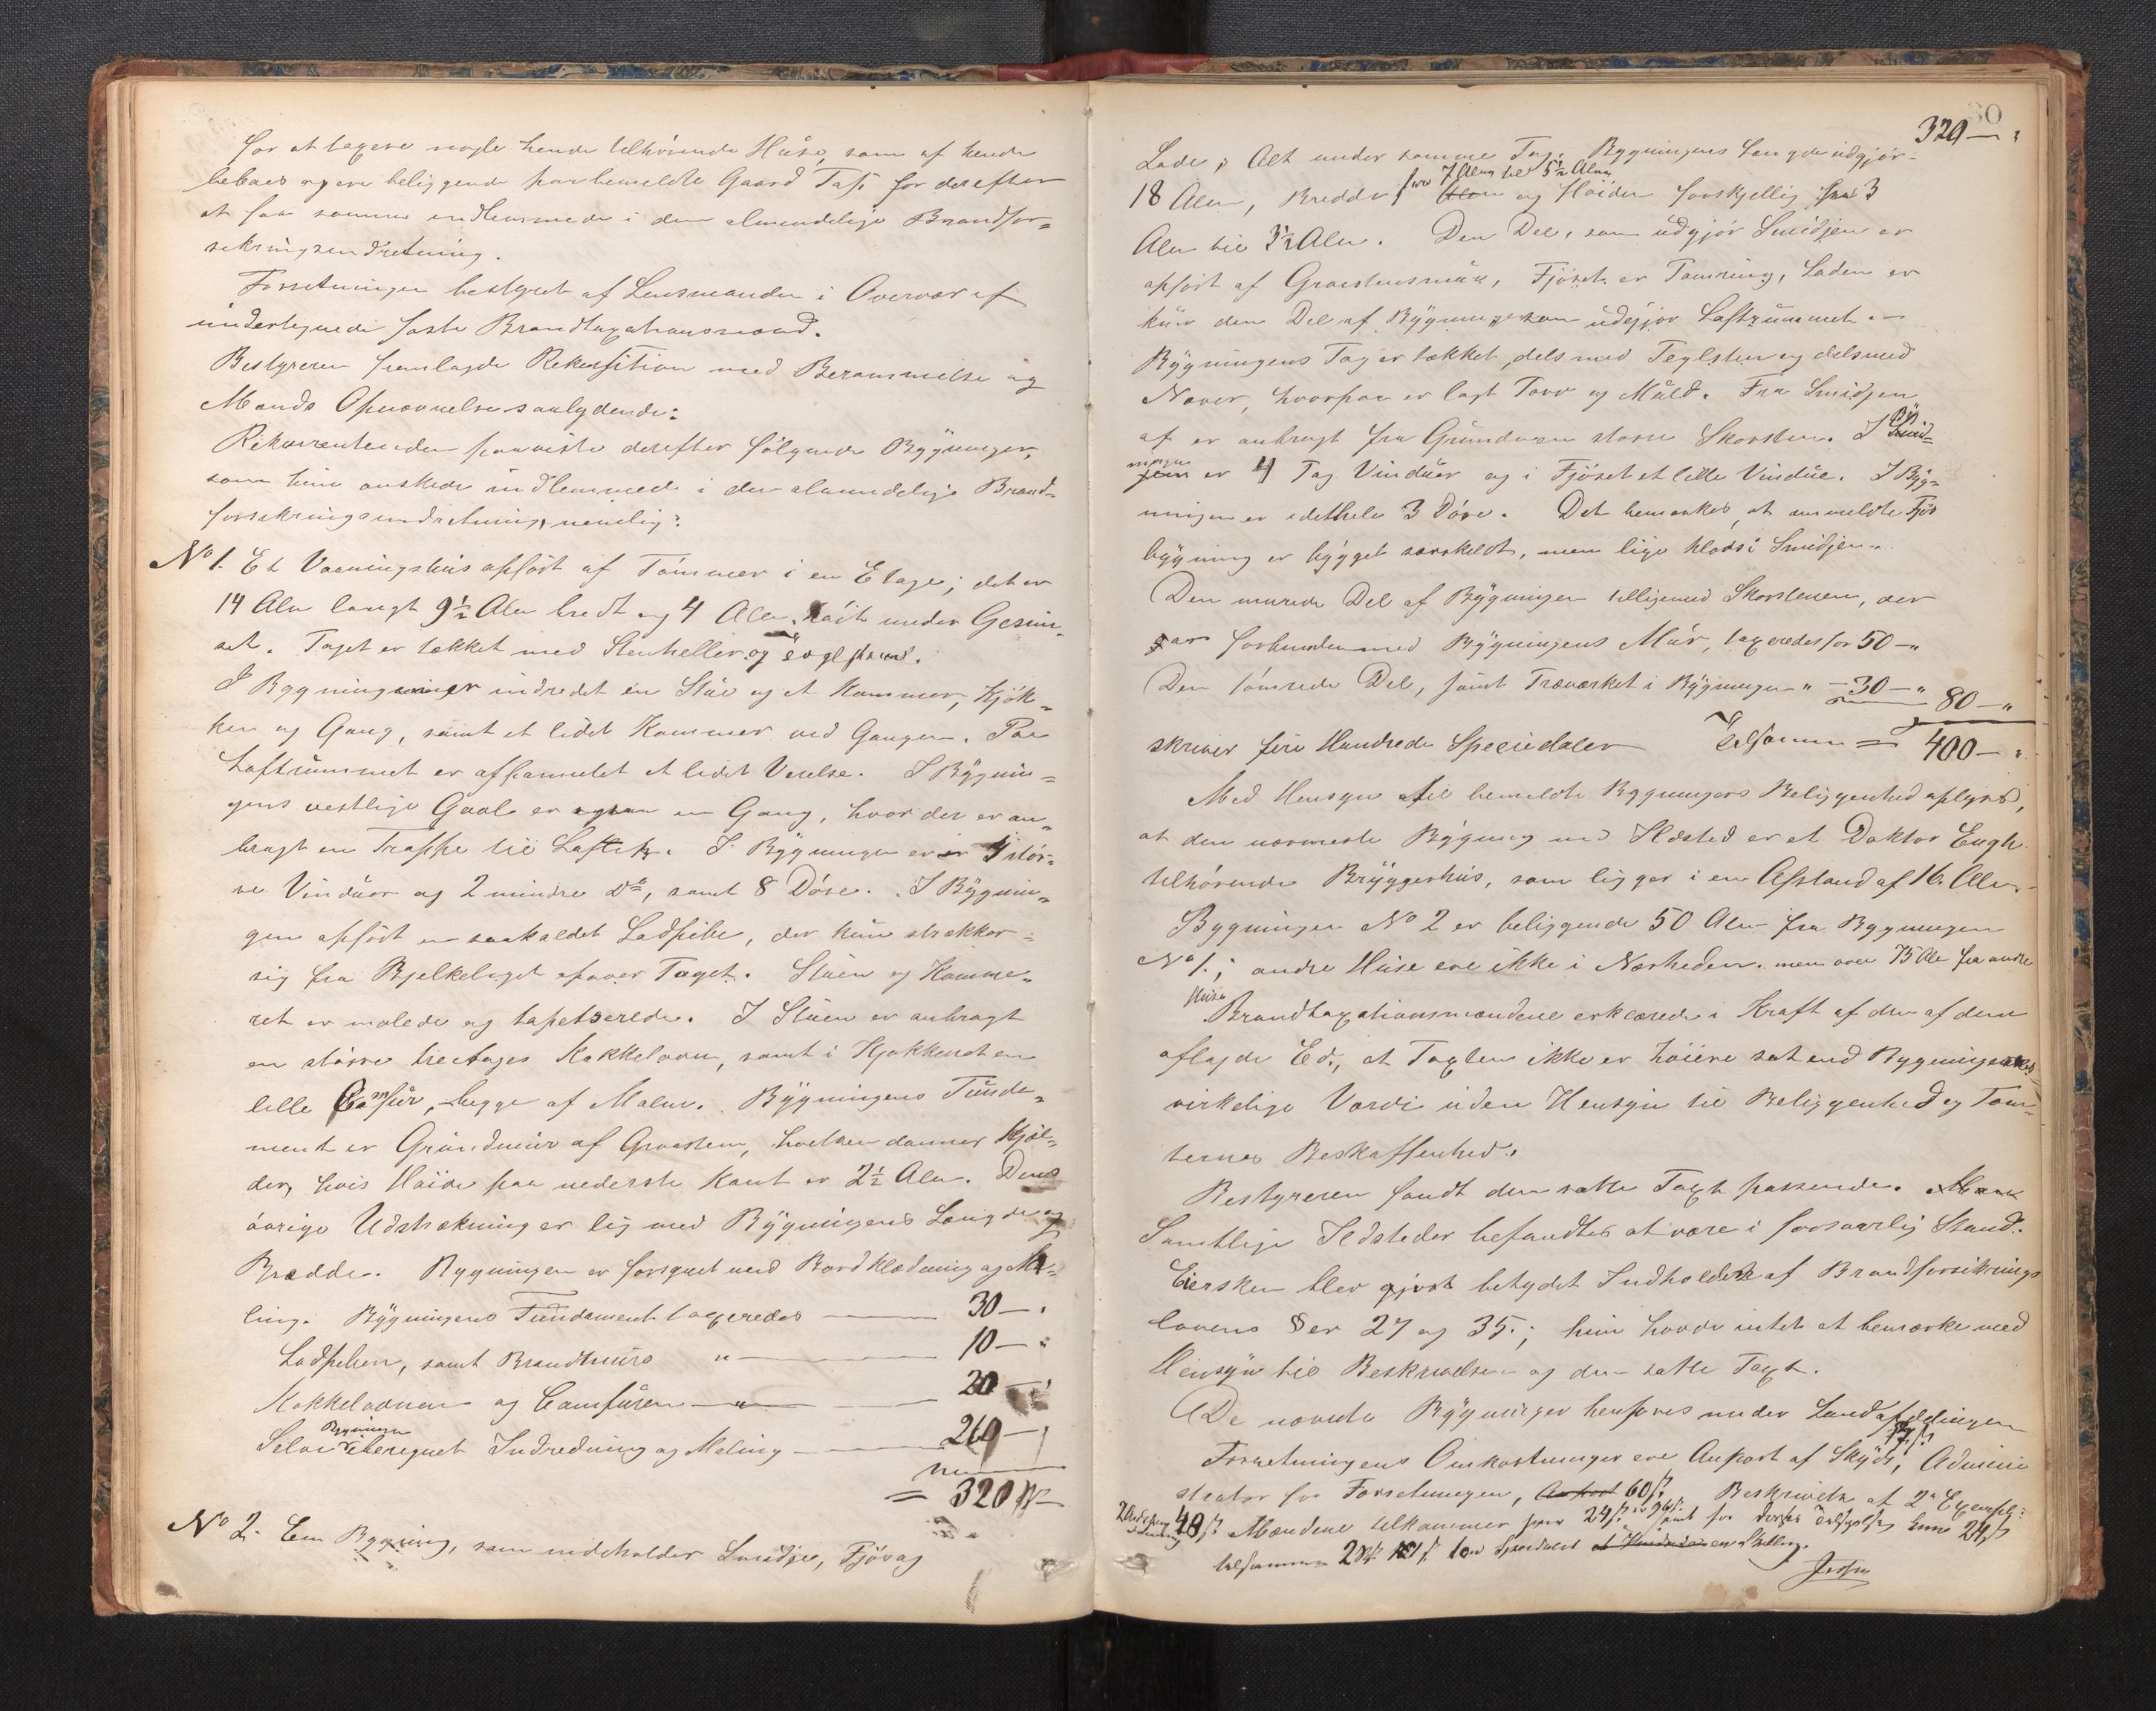 for at taxere nogle hende tilhörende Húse, som af hende
beboes og ere beliggende paa bemeldte Gaard for derefter
at faa samme indlemmede i den almindelige Brandfor=
sikringsindretning.
Forretningen bestyret af Lensmanden i Overvær af
undertegnede faste Brandtaxationsmænd.
Bestyreren fremlagde Rekvisition med Berammelse og
Mænds Opnævnelse saalydende:
Rekvirentinden paaviste derefter fölgende Bygninger,
som hun önskede indlemmede i den almindelige Brand=
forsikringsindretning, nemlig:
No 1. Et Vaaningshús opfört af Tömmer i en Etage; det er
14 Alen langt 9½ Alen bredt og 4 Alen höit under Gesim=
set. Taget er tækket med Stenheller og
I Bygningen er indredet en Stúe og et Kammer, Kjök=
ken og Gang, samt et lidet Kammer ved Gangen. Paa
Loftrúmmet er afpanelet et lidet Værelse. I Bygnin=
gens vestlige Gavl er ogsaa en Gang, hvor der er an=
bragt en Trappe til Loftet. I Bygningen er större
Vindúer og 2 mindre do, samt 8 Döre. I Bygnin=
gen opfört en saakaldet Ladpibe, der kún strækker
sig fra Bjelkelaget opover Taget. Stúen og Kamme=
ret er malede og tapetserede. I Stúen er anbragt
en större treetages Kakkelovn, samt i Kjökkenet en
lille Comfúr, begge af Malm. Bygningens Fúnda=
ment er Grúndmúr af Graasten, hvilken danner Kjæl=
der, hvis Höide paa nederste Kant er 2½ Alen. Dens
övrige Udstrækning er lig med Bygningens Længde og
Bredde. Bygningen er forsynet med Bordklædning og Ma=
ling. Bygningens Fúndament taxeredes — 30 — "
Ladpiben, samt Brandmúre " — 10 — "
Kakkelovnen og Comfúren — " — 20 — "
Selve Bygningen iberegnet Indredning og Maling — 260 —
= 320
No 2. En Bygning, som indeholder Smidje, Fjös og
80
320 — "
Lade, Alt under samme Tag. Bygningens Længde údgjör
18 Alen, Bredde fra 7 Alen til 5½ Alen og Höiden forskjellig fra 3
Alen til 3½ Alen. Den Del, som údgjör Smidjen er
opfört af Graastensmúr, Fjöset er Tömring, Laden er
kún den Del af Bygningen som údgjör Loftrúmmet.
Bygningens Tag er tækket dels med Teglsten og dels med
Næver, hvorpaa er lagt Torv og Múld. Fra Smidjen
af er anbragt fra Grúnden en större Skorsten. I Byg=
ningen er 4 Fag Vindúer og i Fjöset et lille Vindúe. I Byg=
ningen er idethele 3 Döre. Det bemærkes, at anmeldte Fjös
bygning er bygget særskildt, men lige klods i Smidjen.
Den murede Del af Bygningen tilligemed Skorstenen, der
var forbunden med Bygningens Múr, taxeredes for 50 — "
Den tömrede Del, samt Træværket i Bygningen " — 30 — " 80 — "
skriver fire Hundrede Speciedaler Tilsammen = 400 — "
Med Hensyn til bemeldte Bygningers Beliggenhed oplyses,
at den nærmeste Bygning med Ildsted er et Doktor Engh
tilhörende Bryggerhús, som ligger i en Afstand af 16 Alen.
Bygningen No 2 er beliggende 50 Alen fra Bygningen
No 1.; andre Húse ere ikke i Nærheden. men over 75 Al fra andre
Húse
Brandtaxationsmændene erklærede i Kraft af den af dem
aflagde Ed, at Taxten ikke er höiere sat end Bygningernes
virkelige Værdi úden Hensyn til Beliggenhed og Tom=
ternes Beskaffenhed.
Bestyreren fandt den satte Taxt passende.
Samtlige Ildsteder befandtes at være i forsvarlig Stand.
Eiersken blev gjort betydet Indholdet af Brandforsikrings
lovens §er 27 og 35.; hún havde intet at bemærke med
Hensyn til Beskrivelsen og den satte Taxt.
De nævnte Bygninger henföres under Landafdelingen
Forretningens Omkostninger ere Anpart af Skyds, Admini
strator for Forretningen, 60 ß Beskrivelse af 2de Exempl:
48 ß. Mændene tilkommer hver 24 ß er 96 ß. samt for 24 ß
tilsammen 2 Spd 101 ß. to Speciedaler en Skilling.